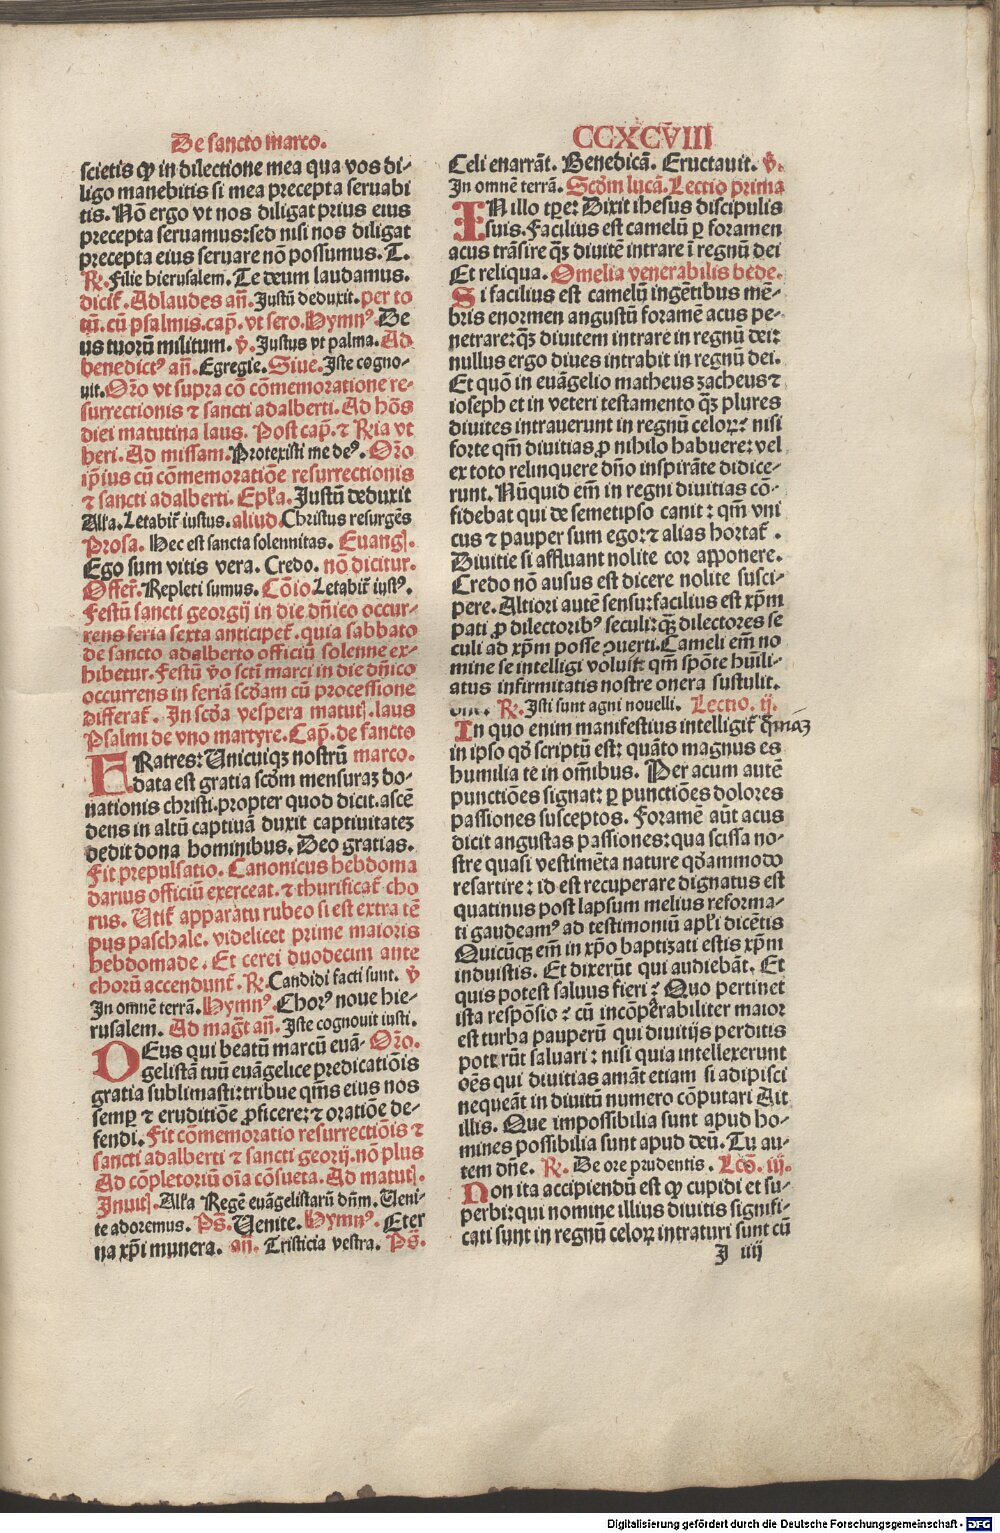 De sancto marco.
CCXCVIII
scietis ꝙ in dilectione mea qua vos di-
ligo manebitis si mea precepta seruabi
tis. Nō ergo vt nos diligat prius eius
precepta seruamus: sed nisi nos diligat
precepta eius seruare nō possumus. T.
℟. Filie hierusalem. Te deum laudamus.
dicit᷑. Ad laudes an̄. Justū deduxit. per to
tū. cū psalmis. cap̄. vt sero. Hymnꝰ. De
us tuorū militum. ℣. Justus vt palma. Ad
benedictꝰ an̄. Egregie. Siue. Iste cogno-
uit. Or̄o vt supra cō cōmemoratione re-
surrectionis ⁊ sancti adalberti. Ad hōs
diei matutina laus. Post cap̄. ⁊ R̄ia vt
heri. Ad missam. Protexisti me deꝰ. Or̄o
ip̄ius cū cōmemoratiōe resurrectionis
⁊ sancti adalberti. Ep̄ła. Justū deduxit
Alła. Letabit᷑ iustus. aliud. Christus resurgēs
Prosa. Hec est sancta solennitas. Euangl̄.
Ego sum vitis vera. Credo. nō dicitur.
Offert᷑. Repleti sumus. Cōio Letabit᷑ iustꝰ.
Festū sancti georgij in die dn̄ico occur-
rens feria sexta anticipet᷑. quia sabbato
de sancto adalberto officiū solenne ex-
hibetur. Festū v̊o scti marci in die dn̄ico
occurrens in feriā scd̄am cū processione
differat᷑. In scd̄a vespera matutꝭ. laus
Psalmi de vno martyre. Cap̄. de sancto
FRatres: Unicuiqꝫ nostrū marco.
data est gratia scd̄m mensuraꝫ do-
nationis christi. propter quod dicit. ascē
dens in altū captiuā duxit captiuitateꝫ
dedit dona hominibus. Deo gratias.
Fit prepulsatio. Canonicus hebdoma
darius officiū exerceat. ⁊ thurificat᷑ cho
rus. Utit᷑ apparatu rubeo si est extra tē
pus paschale. videlicet prime maioris
hebdomade. Et cerei duodecim ante
chorū accendunt᷑. ℟. Candidi facti sunt. ℣
In omnē terrā. Hymnꝰ. Chorꝰ noue hie-
rusalem. Ad mag̅t an̄. Iste cognouit iusti.
DEus qui beatū marcū euā- Or̄o.
gelistā tuū euāgelice predicatiōis
gratia sublimasti: tribue qm̄s eius nos
semꝑ ⁊ eruditiōe ꝓficere: ⁊ oratiōe de-
fendi. Fit cōmemoratio resurrectiōis ⁊
sancti adalberti ⁊ sancti georij. nō plus
Ad cōpletoriū oīa cōsueta. Ad matutꝭ.
Inuitꝭ. Alła Regē euāgelistarū dn̄m. Ueni-
te adoremus. Ps̄. Uenite. Hymnꝰ. Eter
na xp̄i munera. an̄. Tristicia vestra. Ps̄.
Celi enarrāt. Benedicā. Eructauit. ℣.
In omnē terrā. Scd̄m lucā. Lectio prima
IN illo tp̄e: Dixit ihesus discipulis
suis. Facilius est camelū ꝑ foramen
acus trāsire qꝫ diuitē intrare ī regnū dei
Et reliqua. Omelia venerabilis bede.
Si facilius est camelū ingētibus mē-
bris enormen angustū foramē acus pe-
netrare: qꝫ diuitem intrare in regnū dei:
nullus ergo diues intrabit in regnū dei.
Et quō in euāgelio matheus zacheus ⁊
ioseph et in veteri testamento qꝫ plures
diuites intrauerunt in regnū celoꝝ: nisi
forte qm̄ diuitias ꝓ nihilo habuere: vel
ex toto relinquere dn̄o inspirāte didice-
runt. Nūquid em̄ in regni diuitias cō-
fidebat qui de semetipso canit: qm̄ vni
cus ⁊ pauper sum ego: ⁊ alias hortat᷑.
Diuitie si affluant nolite cor apponere.
Credo nō ausus est dicere nolite susci-
pere. Altiori autē sensu: facilius est xp̄m
pati ꝓ dilectoribꝰ seculi: qꝫ dilectores se
culi ad xp̄m posse ꝯuerti. Cameli em̄ no
mine se intelligi voluit: qm̄ spōte hūili-
atus infirmitatis nostre onera sustulit.
℟. Isti sunt agni nouelli. Lectio. ij.
In quo enim manifestius intelligit᷑ q̄maꝫ
in ipso qd̄ scriptū est: quāto magnus es
humilia te in om̄ibus. Per acum autē
punctiōes signat: ꝑ punctiōes dolores
passiones susceptos. Foramē aūt acus
dicit angustas passiones: qua scissa no-
stre quasi vestimēta nature qd̄ammodo
resartire: id est recuperare dignatus est
quatinus post lapsum melius reforma-
ti gaudeamꝰ ad testimoniū apl̄i dicētis
Quicūqꝫ em̄ in xp̄o baptizati estis xp̄m
induistis. Et dixerūt qui audiebāt. Et
quis potest saluus fieri: Quo pertinet
ista respōsio: cū incōpērabiliter maior
est turba pauperū qui diuitijs perditis
poterūt saluari: nisi quia intellexerunt
oēs qui diuitias amāt etiam si adipisci
nequeāt in diuitū numero cōputari Ait
illis. Que impossibilia sunt apud ho-
mines possibilia sunt apud deū. Tu au-
tem dn̄e. ℟. De ore prudentis. Lcō. iij.
Non ita accipiendū est ꝙ cupidi et su-
perbi: qui nomine illius diuitis signifi-
cati sunt in regnū celoꝝ intraturi sunt cū
J iiij
Digitalisierung gefördert durch die Deutsche Forschungsgemeinschaft - DFG